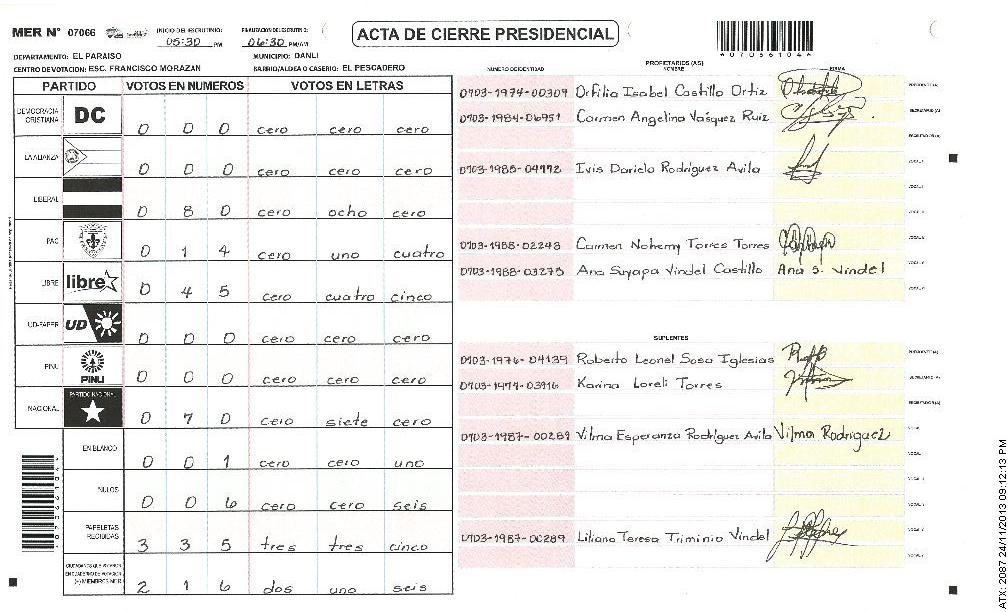 MER N° 07066
INICIO DEL ESCRUTINIO: 05:30 PM
FINALIZACION DEL ESCRUTINIO: 06:30 PM/AM
ACTA DE CIERRE PRESIDENCIAL
DEPARTAMENTO: EL PARAISO
MUNICIPIO: DANLI
CENTRO DE VOTACION: ESC. FRANCISCO MORAZAN
BARRIO/ALDEA O CASERIO: EL PESCADERO
PARTIDO VOTOS EN NUMEROS VOTOS EN LETRAS
DEMOCRACIA CRISTIANA DC 0 0 0 cero cero cero
LA ALIANZA 0 0 0 cero cero cero
LIBERAL 0 8 0 cero ocho cero
PAC 0 1 4 cero uno cuatro
LIBRE libre 0 4 5 cero cuatro cinco
UD-FAPER UD 0 0 0 cero cero cero
PINU PINU 0 0 0 cero cero cero
NACIONAL PARTIDO NACIONAL 0 7 0 cero siete cero
EN BLANCO 0 0 1 cero cero uno
NULOS 0 0 6 cero cero seis
PAPELETAS RECIBIDAS 3 3 5 tres tres cinco
CIUDADANOS QUE VOTARON EN CUADERNO DE VOTACION (+) MIEMBROS MER 2 1 6 dos uno seis
NUMERO DE IDENTIDAD
PROPIETARIOS (AS)
NOMBRE
FIRMA
0703-1974-00309 Orfilia Isabel Castillo Ortiz
0703-1984-06951 Carmen Angelina Vasquez Ruiz
0703-1985-04772 Ivis Dariela Rodríguez Avila
0703-1988-02248 Carmen Nohemy Torres Torres
0703-1988-03275 Ana Suyapa Vindel Castillo Ana S. Vindel
SUPLENTES
0703-1976-04139 Roberto Leonel Sosa Iglesias
Karina Loreli Torres
0703-1987-00289 Vilma Esperanza Rodríguez Avila Vilma Rodriguez
0703-1987-00289 Liliana Teresa Triminio Vindel
ATX: 2087 24/11/2013 09:12:13 PM